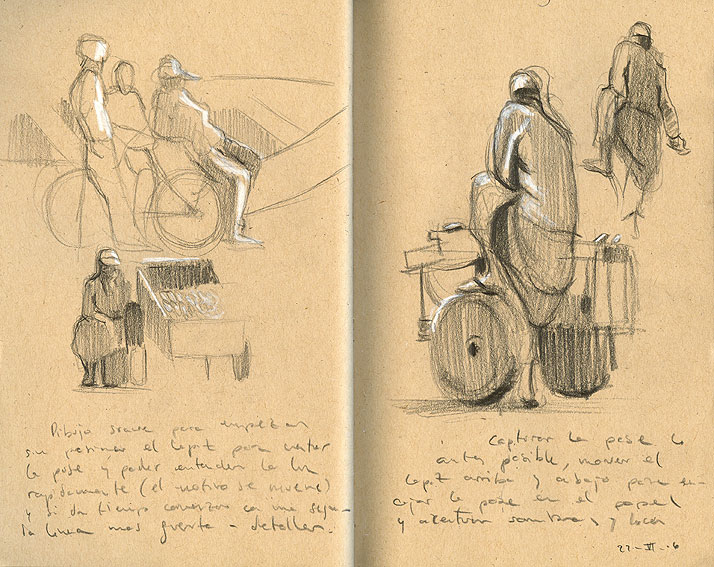 Dibujo suave para empezar
sin presionar el lapiz para captar
la pose y poder entender la luz
rapidamente (el motivo se mueve)
y si da tiempo comenzar con una segunda
la linea mas fuerte - detalles.
capturar la pose lo
antes posible, mover el
lapiz arriba y abajo para en-
cajar la pose en el papel
y acentuar sombras y luces
22-VI-6